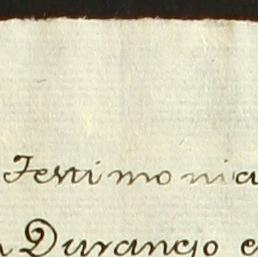 Testimonia
Durango e